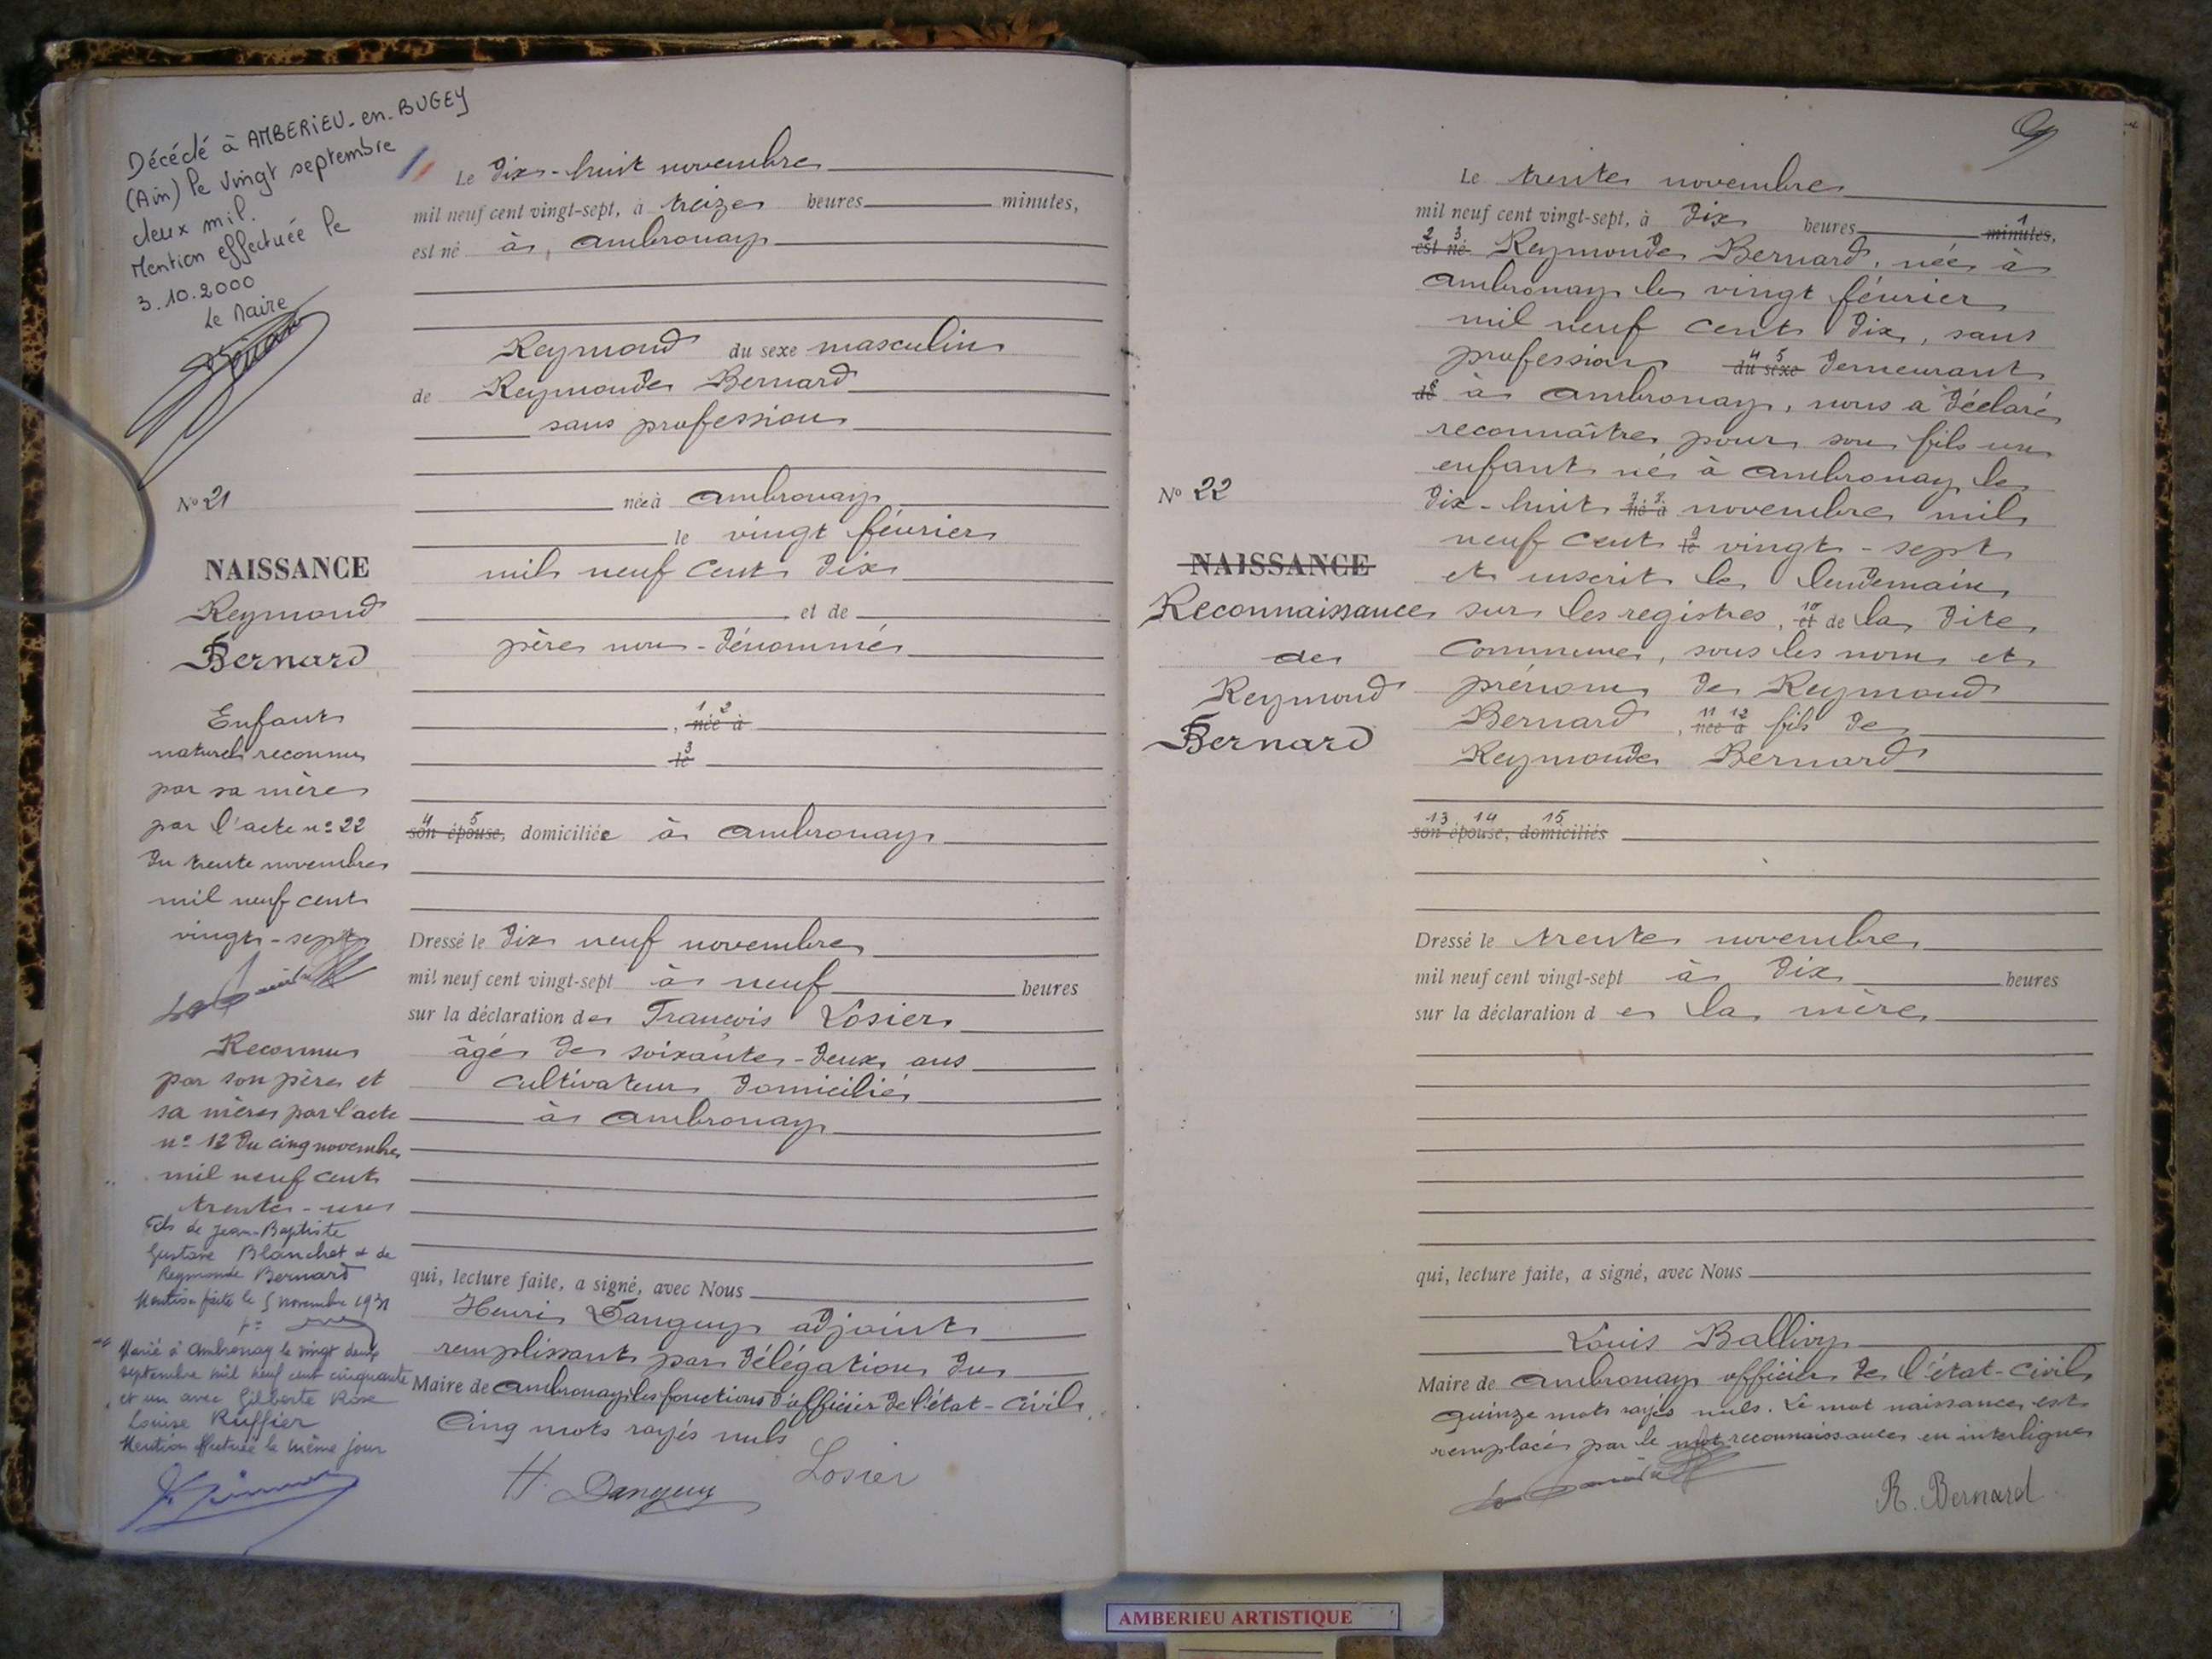 Décédé à AMBERIEU-en-BUGEY
(Ain) le vingt septembre
deux mil.
Mention effectuée le
3.10.2000
Le Maire
No 21
NAISSANCE
Reymond
Bernard
Enfant
naturel reconnu
par sa mère
par l'acte no 22
du trente novembre
mil neuf cent
vingt-sept
Reconnu
par son père et
sa mère par l'acte
no 12 du cinq novembre
mil neuf cent
trente-un
Fils de Jean-Baptiste
Gustave Blanchet & de
Reymonde Bernard
Mention faite le 5 novembre 1931
Marié à Ambronay le vingt deux
septembre mil neuf cent cinquante
et un avec Gilberte Rose
Louise Ruffier
Mention effectuée le même jour
Le dix-huit novembre
mil neuf cent vingt-sept, à treize heures minutes,
est né à, Ambronay
Reymond du sexe masculin
de Reymonde Bernard
sans profession
née à Ambronay
le vingt février
mil neuf cent dix
et de
père non-dénommé
1 2
, née à
3
le
4 5
son épouse, domiciliée à Ambronay
Dressé le dix neuf novembre
mil neuf cent vingt-sept à neuf heures
sur la déclaration de François Losier
âgé de soixante-deux ans
cultivateur domicilié
à Ambronay
qui, lecture faite, a signé, avec Nous
Henri Danguy adjoint
remplissant par délégation du
Maire de Ambronay les fonctions d'officier de l'état-civil
Cinq mots rayés nuls
H. Danguy Losier
9
Le trente novembre
mil neuf cent vingt-sept, à dix heures 1 minutes,
2 3
est né Reymonde Bernard, née à
Ambronay le vingt février
mil neuf cent dix, sans
4 5
profession du sexe demeurant
6
de à Ambronay, nous a déclaré
reconnaître pour son fils un
enfant né à Ambronay le
7 8
dix-huit né à novembre mil
9
neuf cent le vingt-sept
et inscrit le lendemain
10
sur les registres, et de la dite
Commune, sous les nom et
prénom de Reymond
11 12
Bernard, née à fils de
Reymonde Bernard
13 14 15
son épouse, domiciliés
No 22
NAISSANCE
Reconnaissance
de
Reymond
Bernard
Dressé le trente novembre
mil neuf cent vingt-sept à dix heures
sur la déclaration de la mère
qui, lecture faite, a signé, avec Nous
Louis Ballivy
Maire de Ambronay officier de l'état-civil
Quinze mots rayés nuls. Le mot naissance est
remplacé par le mot reconnaissance en interligne
R. Bernard
AMBERIEU ARTISTIQUE